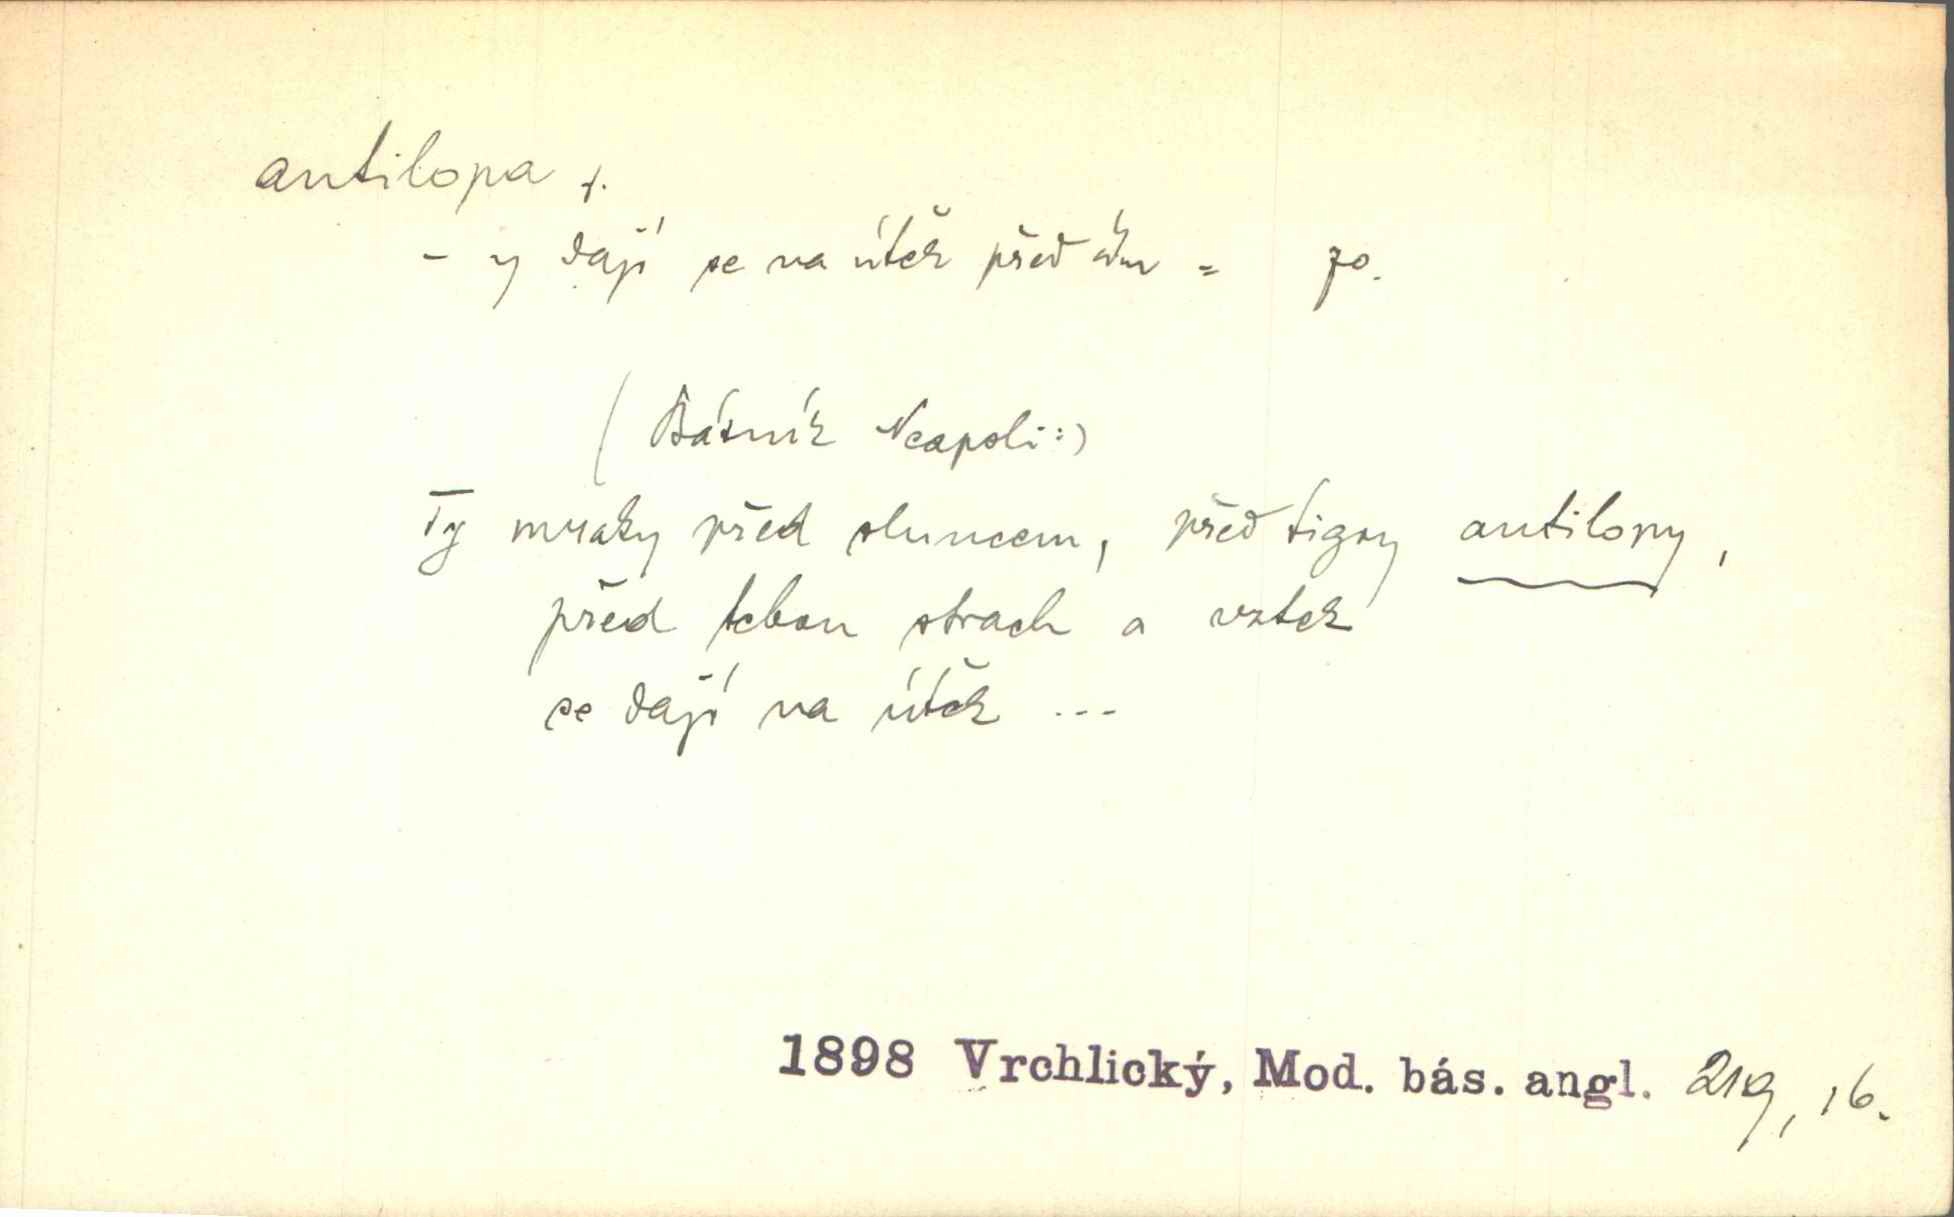 antilopa f.
- y dají se na útěk před čím = po.
(Básník Neapoli:)
Ty mraky před sluncem, před tigry antilopy,
před tebou strach a vztek
se dají na útěk ...
1898 Vrchlický, Mod. bás. angl. 219, 16.